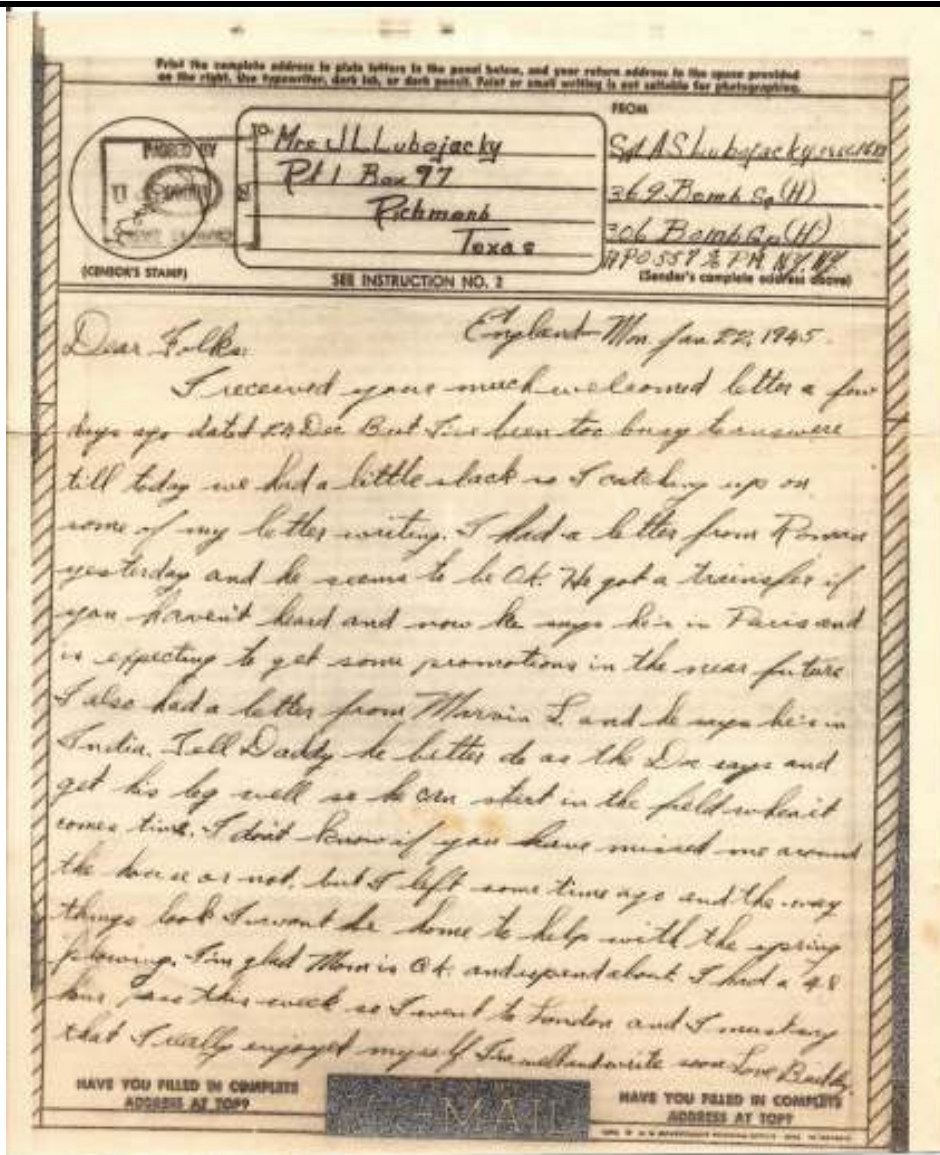 Print the complete address in plain letters in the panel below, and your return address in the space provided
on the right. Use typewriter, dark ink, or dark pencil. Faint or small writing is not suitable for photographing.
FROM
PASSED BY
TO
Mrs JL Lubojacky
Rt 1 Box 97
Richmond
Texas
Sgt A S Lubojacky
369 Bomb Sq (H)
306 Bomb Gp (H)
APO 557 % PM NY. NY
(CENSOR'S STAMP)
SEE INSTRUCTION NO. 2
(Sender's complete address above)
England Mon Jan 22, 1945
Dear Folks:
I received your much welcomed letter a few
days ago dated Dec But I've been too busy to answere
till today we had a little slack so I catching up on
some of my letter writing. I had a letter from
yesterday and he seems to be Ok. He got a trainsfer if
you haven't heard and now he says his in Paris and
is expecting to get some promotions in the near future
I also had a letter from Marvin L. and he says he's in
India. Tell Daddy he better do as the Dr says and
get his leg well so he can start in the field when it
comes time. I don't know if you have missed me around
the house or not, but I left some time ago and the way
things look I wont be home to help with the spring
plowing. I'm glad Mom is Ok. and up and about. I had a 48
hour pass this week so I went to London and I must say
that I really enjoyed myself write soon Love Buddy
HAVE YOU FILLED IN COMPLETE
ADDRESS AT TOP?
V-MAIL
HAVE YOU FILLED IN COMPLETE
ADDRESS AT TOP?